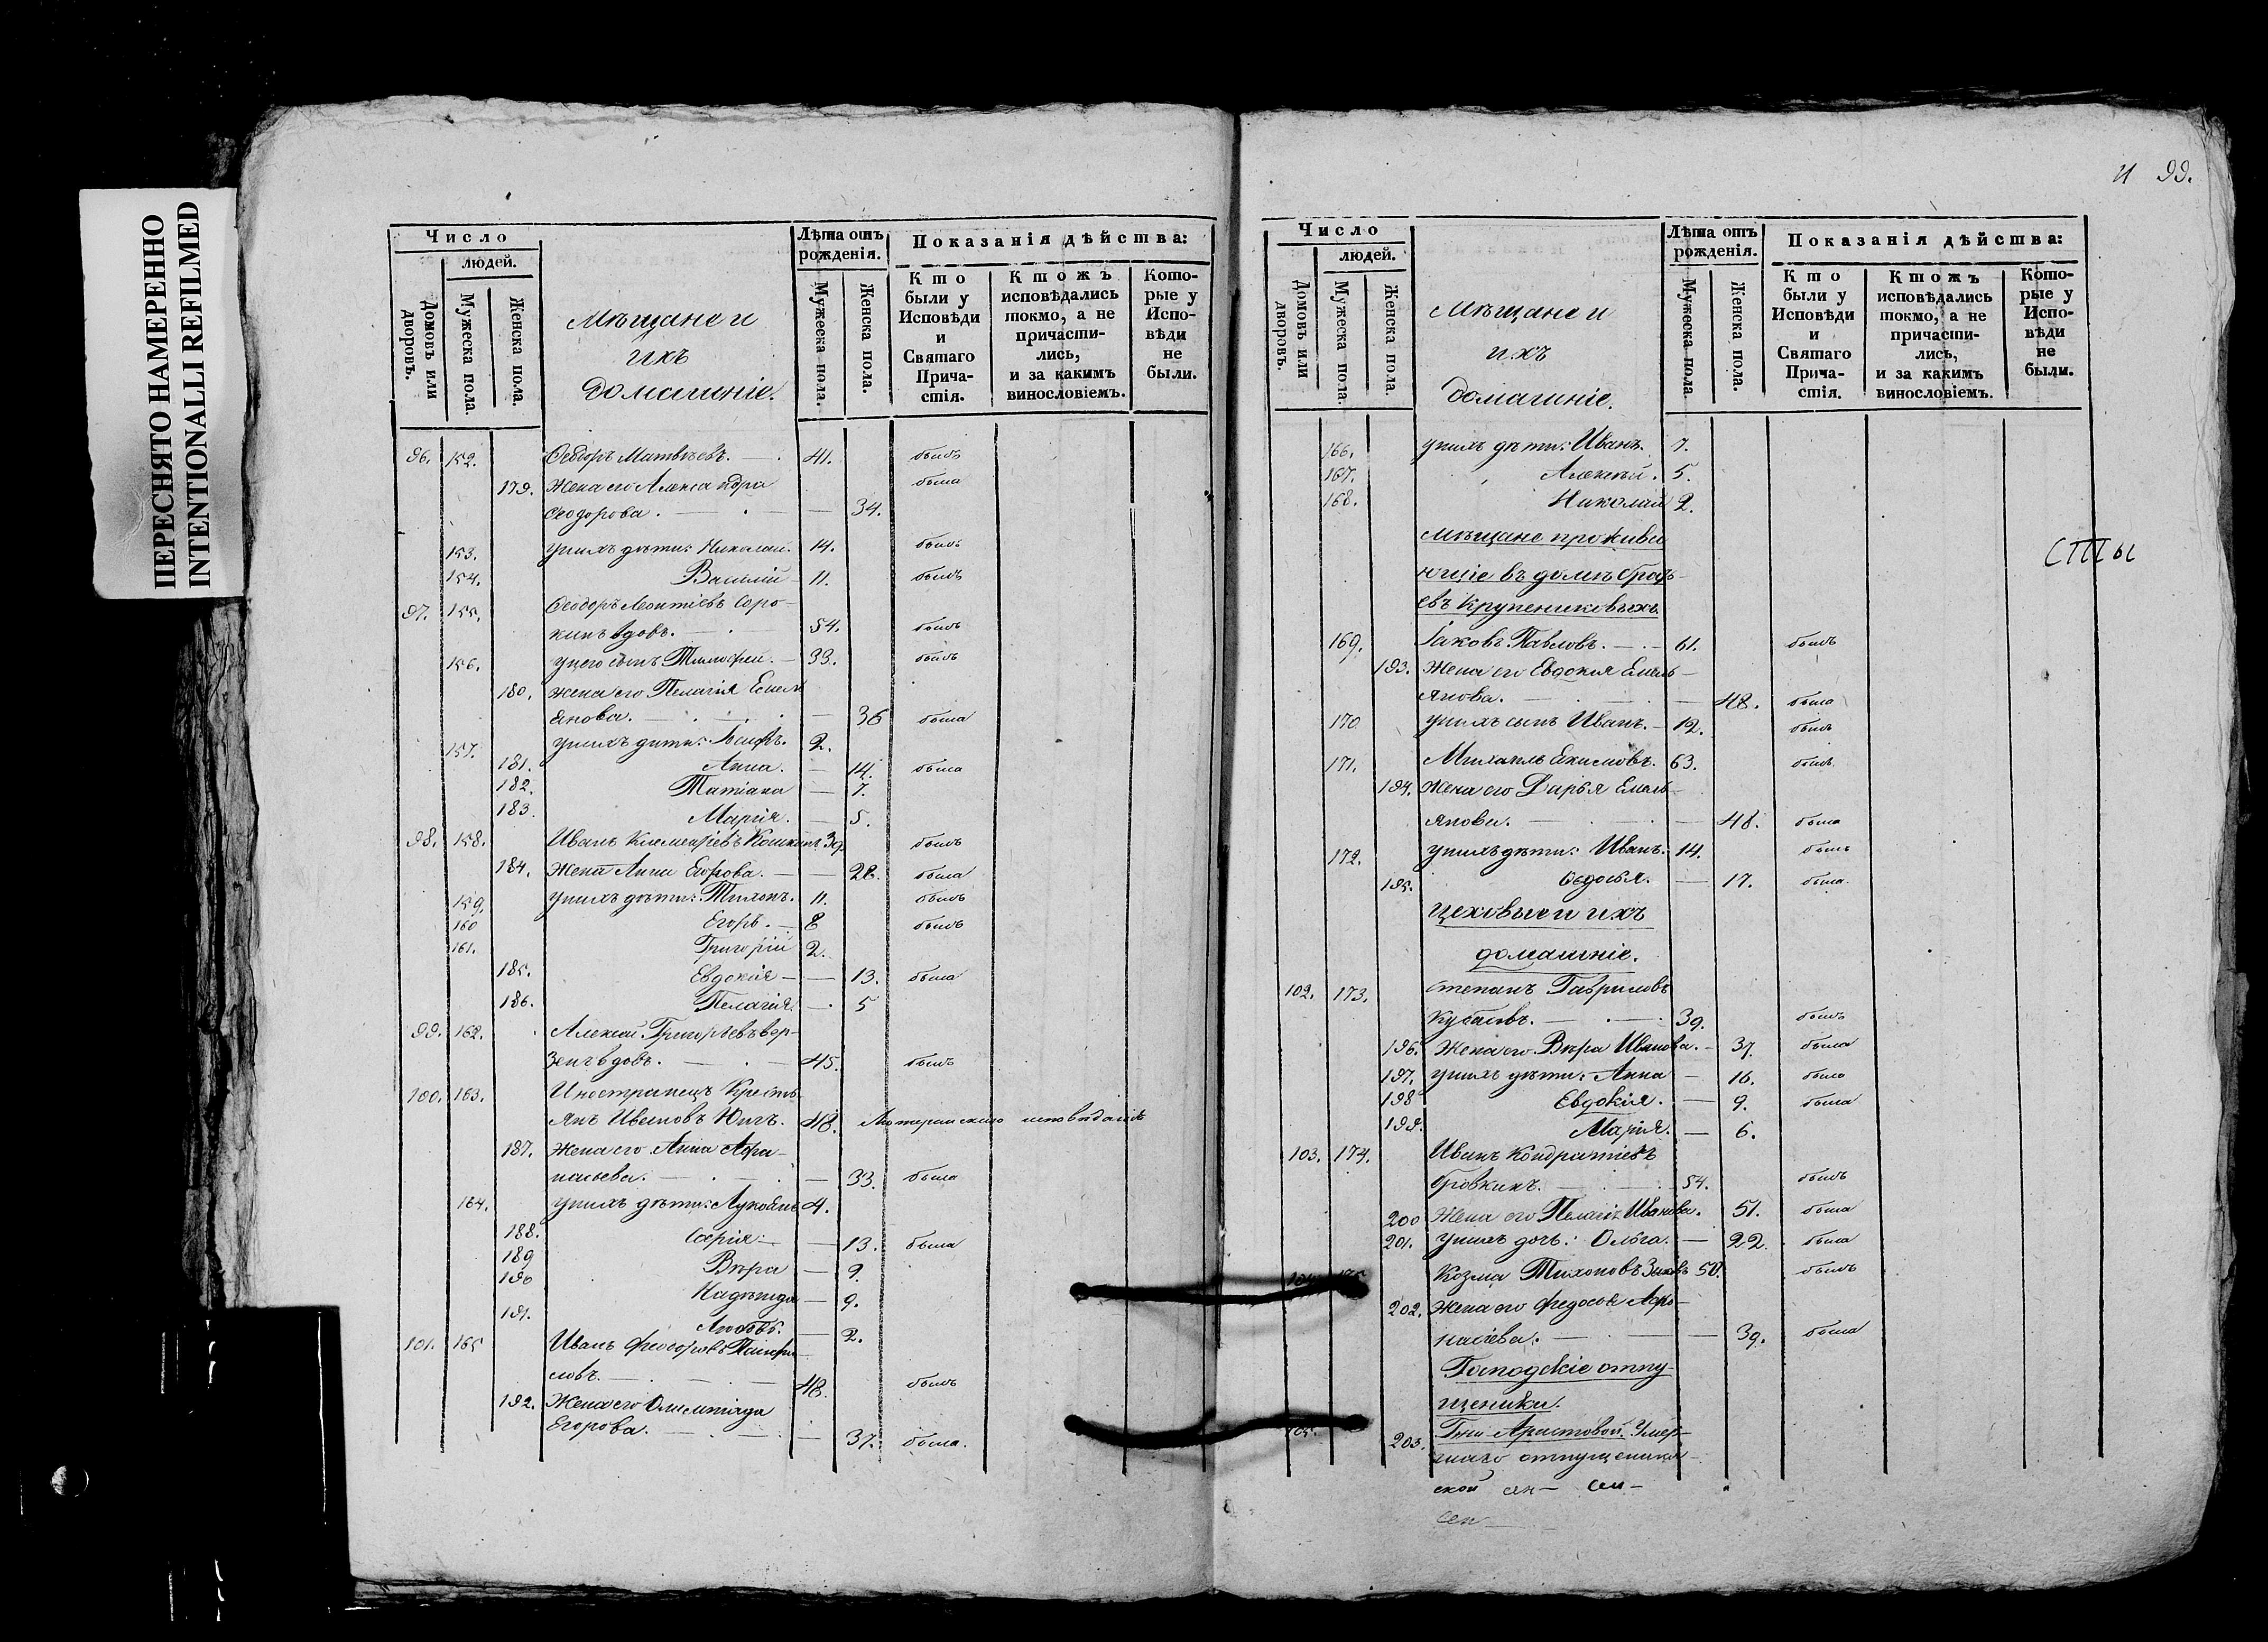 ПЕРЕСНЯТО НАМЕРЕННО
INTENTIONALLI REFILMED
Число
людей.
Домовъ или дворовъ.
Мужеска пола.
Женска пола.
Мѣщане и
ихъ
домашніе.
Лѣта отъ рожденія.
Мужеска пола.
Женска пола.
Показанія дѣйства:
Кто были у Исповѣди и Святаго Прича-стія.
Ктожъ исповѣдались токмо, а не причасти-лись, и за какимъ винословіемъ.
Кото-рые у Испо-вѣди не были.
96. 152. Ѳеодоръ Матвѣевъ. 41. былъ
179. Жена его Александра была
Ѳеодорова. 34.
153. у нихъ дѣти: Николай. 14. былъ
154. Василій 11. былъ
97. 155. Ѳеодоръ Леонтіевъ Соро-
кинъ вдовъ. 54. былъ
156. у него сынъ Тимофей. 33. былъ
180. жена его Пелагія Емель
янова. 36 была
157. у нихъ дѣти: 2.
181. Анна. 14. была
182. Татіана 7.
183. Марія. 5.
98. 158. Иванъ Климентіевъ 39. былъ
184. Жена Анна Егорова. 28. была
159. у нихъ дѣти: Тихонъ. 11. былъ
160 Егоръ. 8 былъ
161. Григорій 2.
185. Евдокія 13. была
186. Пелагія. 5
99. 162. Алексій Григорьевъ вер-
зенъ вдовъ. 45. былъ
100. 163. Иностранецъ Кресть
янъ Ивановъ Юнгъ. 48. Лютеранскаго исповѣданія
187. Жена его Анна Афа-
насьева. 33. была
164. у нихъ дѣти: 4.
188. Софія. 13. была
189 Вѣра 9.
190 Надежда 9.
191. Любовь. 2.
101. 165 Иванъ Ѳеодоровъ Панфи
ловъ. 48. былъ
192. Жена его Олимпіада
Егорова. 37. была.
99.
Число
людей.
Домовъ или дворовъ.
Мужеска пола.
Женска пола.
Мѣщане и
ихъ
домашніе.
Лѣта отъ рожденія.
Мужеска пола
Женска пола.
Показанія дѣйства:
Кто были у Исповѣди и Святаго Прича-стія.
Ктожъ исповѣдались токмо, а не причасти-лись, и за какимъ винословіемъ.
Кото-рые у Испо-вѣди не были.
166. у нихъ дѣти: Иванъ. 7.
167. Алексѣй. 5.
168. Николай 2.
мѣщане прожива
ющіе въ домѣ брать-
евъ Крупениковыхъ.
169. Іаковъ Павловъ. 61. былъ
193. Жена его Евдокія Емель-
янова. 48. была
170 у нихъ сынъ Иванъ. 12. былъ
171. Михаилъ Екимовъ. 63. былъ.
194. Жена его Дарья Емель-
янова. 48. была
172. у нихъ дѣти: Иванъ. 14. былъ
195. Ѳедосья. 17. была.
цеховые и ихъ
домашніе.
102. 173. Степанъ Гавриловъ
39. былъ
196. Жена его Вѣра Иванова. 37. была
197. у нихъ дѣти: Анна 16. была
198 Евдокія. 9. была
199. Марія. 6.
103. 174. Иванъ Кондратіевъ
54. былъ
200 Жена его Пелагія Иванова. 51. была
201. у нихъ дочь: Ольга. 22. была
Козма Тихоновъ 50. былъ
202. Жена его Федосья Афо-
насіева. 39. была
Господскіе отпу-
щеники.
105. 203. Г-жи Аристовой Умер-
шаго отпущеника